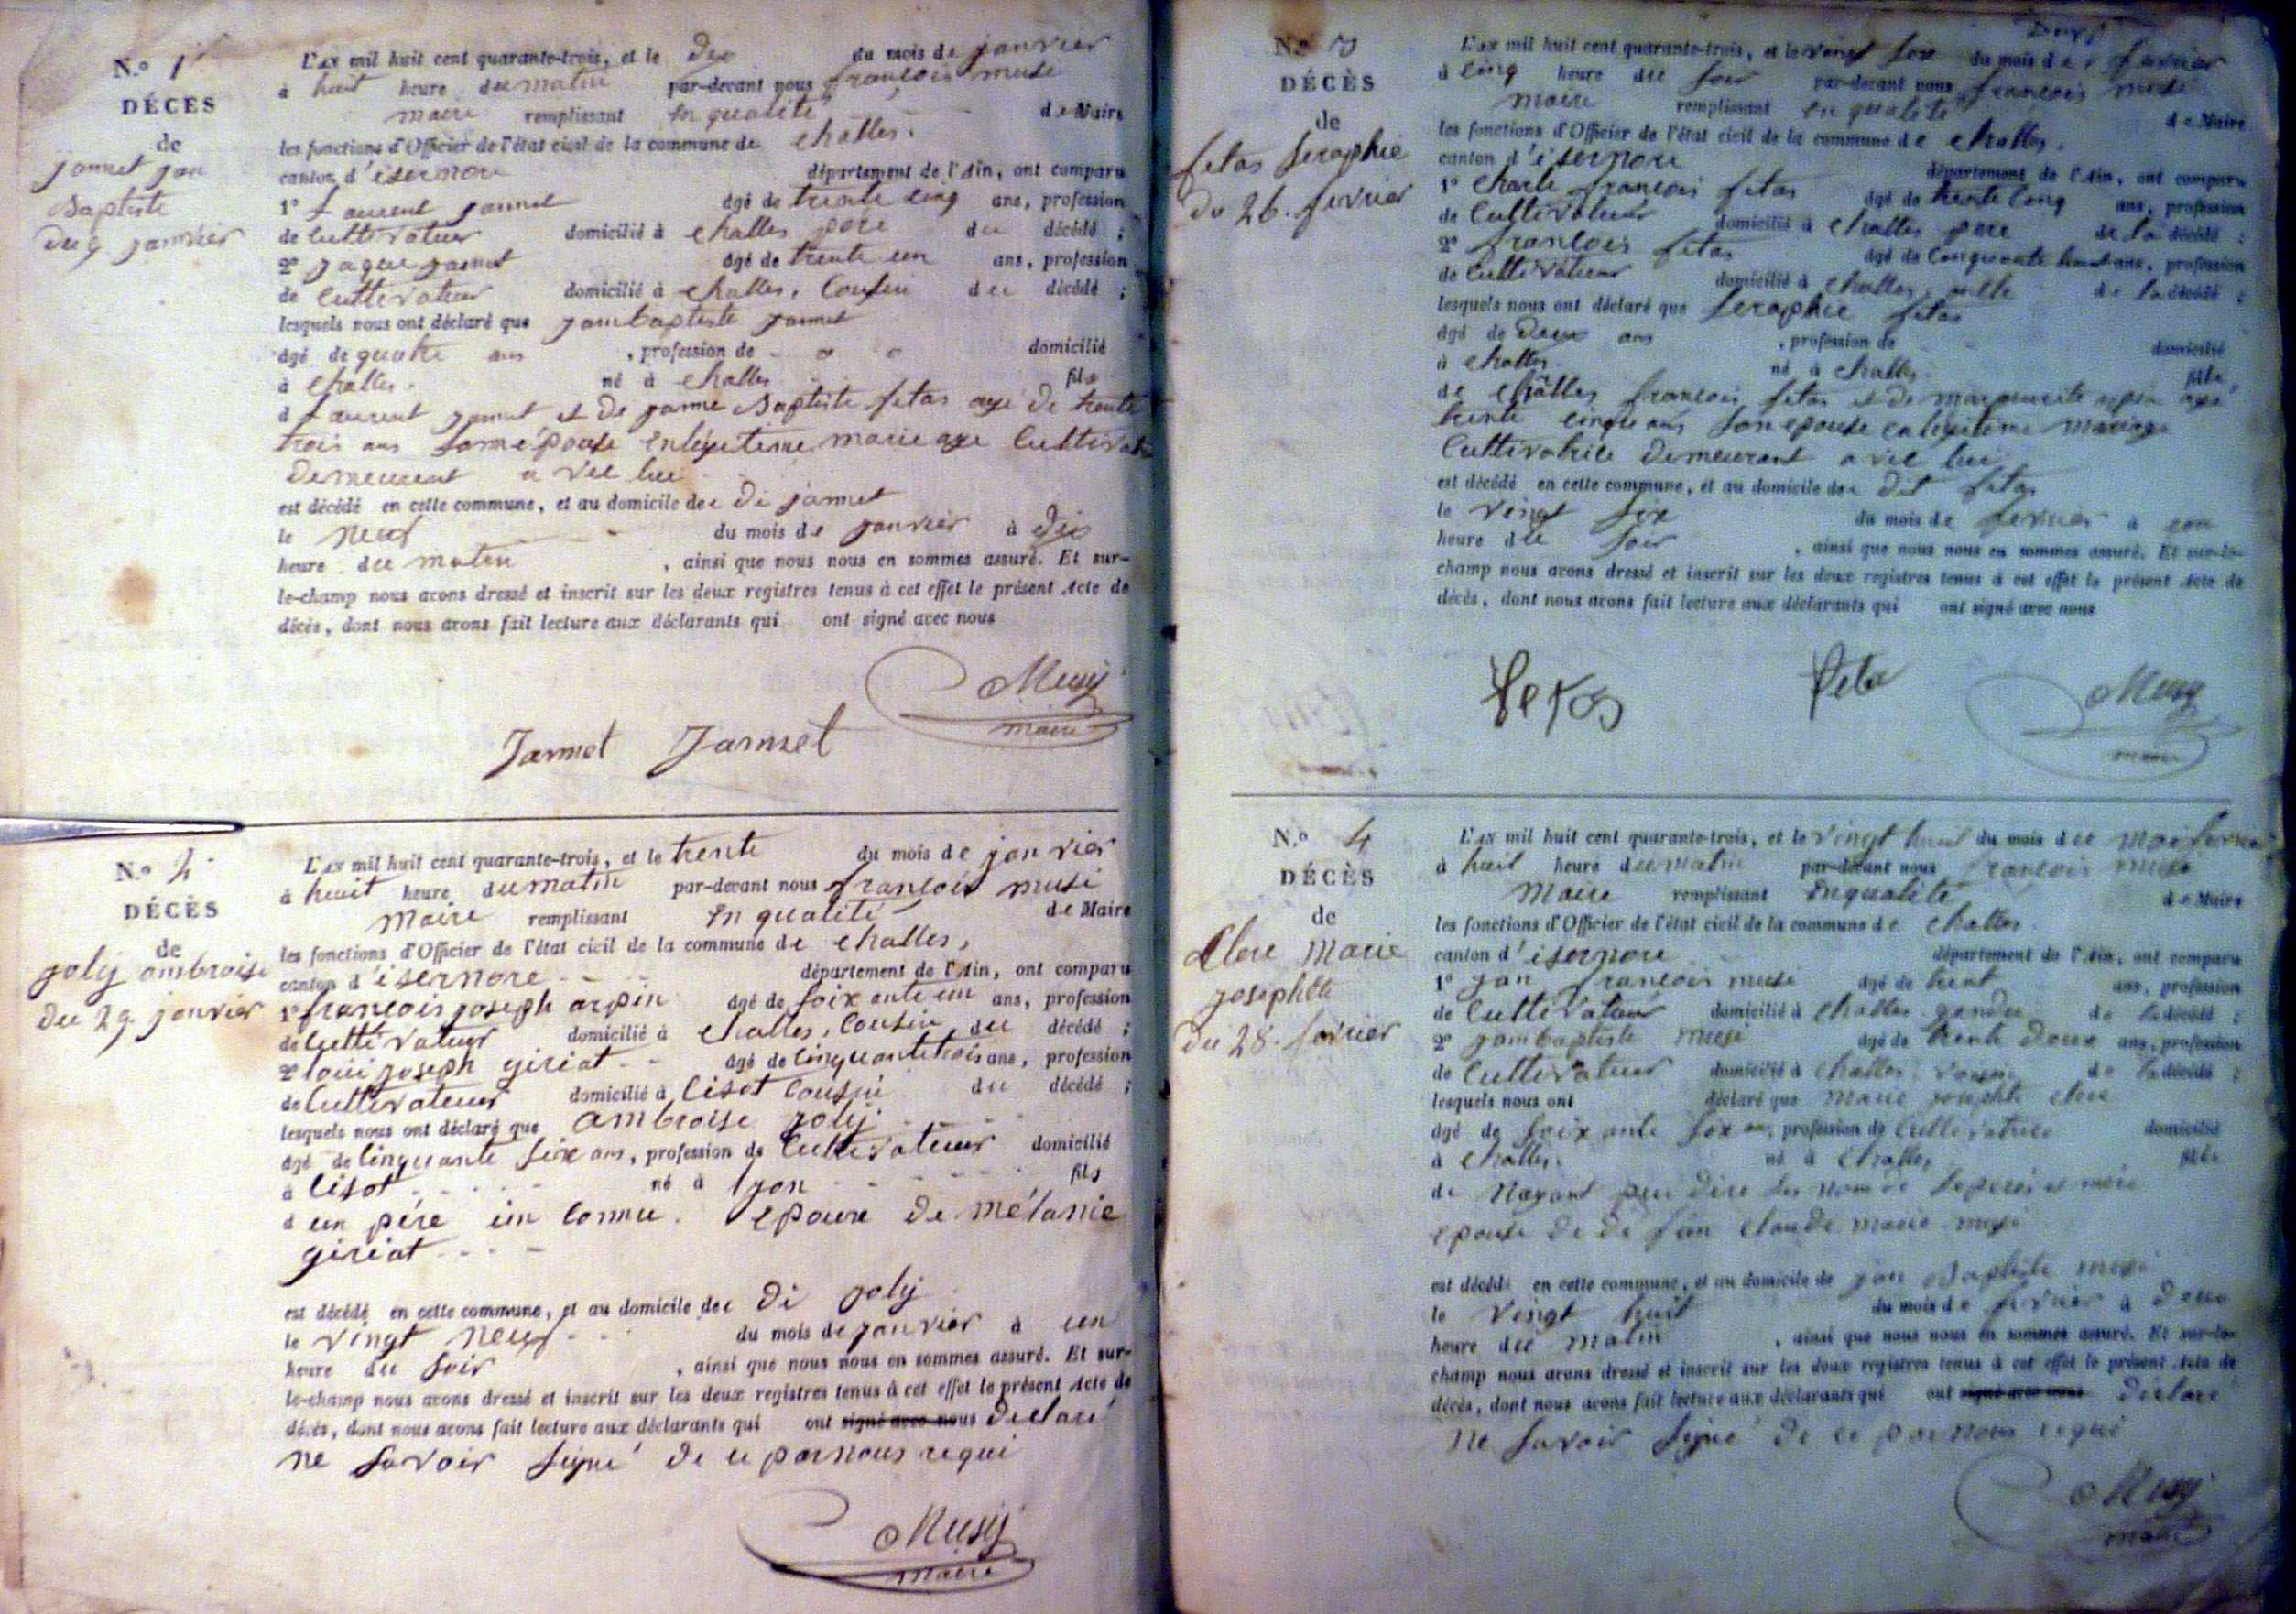 N.o 1
DÉCÈS
de
jannet jan
Baptiste
du 9 janvier
L'an mil huit cent quarante-trois, et le dix du mois de janvier
à huit heure du matin par-devant nous françois musi
maire remplissant en qualité de Maire
les fonctions d'Officier de l'état civil de la commune de challes.
canton d'isernore département de l'Ain, ont comparu
1o Laurent jannet âgé de trente cinq ans, profession
de cultivateur domicilié à challes pere du décédé ;
2o jaque jannet âgé de trente un ans, profession
de cultivateur domicilié à challes, cousin du décédé ;
lesquels nous ont déclaré que janbaptiste jannet
âgé de quatre ans , profession de domicilié
à challes. né à challes fils
d Laurent jannet et de janne Baptiste fetas age de trente
trois ans son epouse en legitime marieage
demeurent avec lui
est décédé en cette commune, et au domicile de di jannet
le neuf du mois de janvier à dix
heure du matin , ainsi que nous nous en sommes assuré. Et sur-
le-champ nous avons dressé et inscrit sur les deux registres tenus à cet effet le présent Acte de
décès, dont nous avons fait lecture aux déclarants qui ont signé avec nous
Musy
maire
Jannet Jannet
N.o 2
DÉCÈS
de
joly ambroise
du 29. janvier
L'an mil huit cent quarante-trois, et le trente du mois de janvier
à huit heure du matin par-devant nous françois musi
maire remplissant en qualité de Maire
les fonctions d'Officier de l'état civil de la commune de challes,
canton d'isernore département de l'Ain, ont comparu
1o françois joseph arpin âgé de soixante un ans, profession
de cultivateur domicilié à challes, cousin du décédé ;
2o loui joseph giriat âgé de cinquante trois ans, profession
de cultivateur domicilié à lisot cousin du décédé ;
lesquels nous ont déclaré que ambroise joly
âgé de cinquante six ans, profession de cultivateur domicilié
à lisot né à lyon fils
d un pére inconnu. epoux de mélanie
giriat
est décédé en cette commune, et au domicile de di joly
le vingt neuf du mois de janvier à un
heure du soir , ainsi que nous nous en sommes assuré. Et sur-
le-champ nous avons dressé et inscrit sur les deux registres tenus à cet effet le présent Acte de
décès, dont nous avons fait lecture aux déclarants qui ont signé avec nous déclaré
ne savoir signé de ce par nous requi
Musy
maire
N.o 3
DÉCÈS
de
fetas seraphie
du 26. fevrier
L'an mil huit cent quarante-trois, et le vingt six du mois de fevrier
à cinq heure du soir par-devant nous françois musi
maire remplissant en qualité de Maire
les fonctions d'Officier de l'état civil de la commune de challes.
canton d'isernore département de l'Ain, ont comparu
1o charle françois fetas âgé de trente cinq ans, profession
de cultivateur domicilié à challes pere de la décédé ;
2o françois fetas âgé de cinquante ans, profession
de cultivateur domicilié à challes de la décédé ;
lesquels nous ont déclaré que seraphie fetas
âgé de deux ans , profession de domicilié
à challes. né à challes. fille
de challes françois fetas et de marguerite arpin age
trente cinq ans son epouse en legitime mariage
cultivatrice demeurant avec lui
est décédé en cette commune, et au domicile de dit fetas
le vingt six du mois de fevrier à
heure du soir , ainsi que nous nous en sommes assuré. Et sur-le-
champ nous avons dressé et inscrit sur les deux registres tenus à cet effet le présent Acte de
décès, dont nous avons fait lecture aux déclarants qui ont signé avec nous
fetas feta Musy
maire
N.o 4
DÉCÈS
de
Clere Marie
josephte
du 28. fevrier
L'an mil huit cent quarante-trois, et le vingt huit du mois de
à huit heure du matin par-devant nous françois musi
maire remplissant en qualité de Maire
les fonctions d'Officier de l'état civil de la commune de challes.
canton d'isernore département de l'Ain, ont comparu
1o jan françois musi âgé de trent ans, profession
de cultivateur domicilié à challes gendre de la décédé ;
2o janbaptiste musi âgé de trente deux ans, profession
de cultivateur domicilié à challes de la décédé ;
lesquels nous ont déclaré que marie josephte clere
âgé de soixante six ans, profession de cultivatrice domicilié
à challes. né à challes fille
de nayant peu dire les nom de pere et mere
epouse de de feu claude marie musi
est décédé en cette commune, et au domicile de jan Baptiste musi
le vingt huit du mois de fevrier à deux
heure du matin , ainsi que nous nous en sommes assuré. Et sur-le-
champ nous avons dressé et inscrit sur les deux registres tenus à cet effet le présent Acte de
décès, dont nous avons fait lecture aux déclarants qui ont signé avec nous déclaré
ne savoir signé de ce par nous requi
Musy
maire